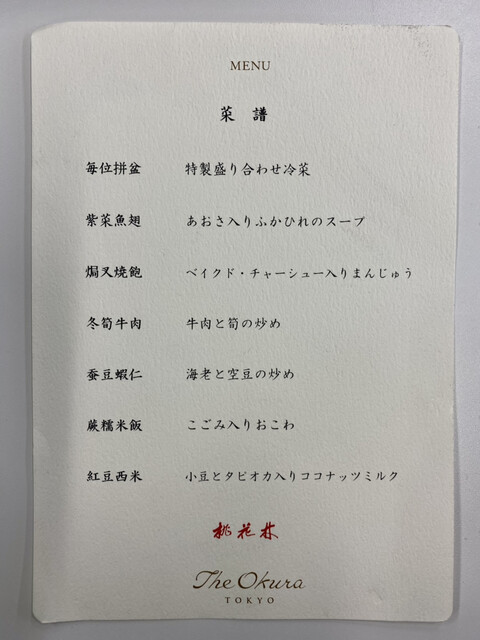 MENU
菜 譜
毎位拼盆 特製盛り合わせ冷菜
紫菜魚翅 あおさ入りふかひれのスープ
焗叉燒飽 ベイクド・チャーシュー入りまんじゅう
冬筍牛肉 牛肉と筍の炒め
蚕豆蝦仁 海老と空豆の炒め
蕨糯米飯 こごみ入りおこわ
紅豆西米 小豆とタピオカ入りココナッツミルク
桃花林
The Okura
TOKYO